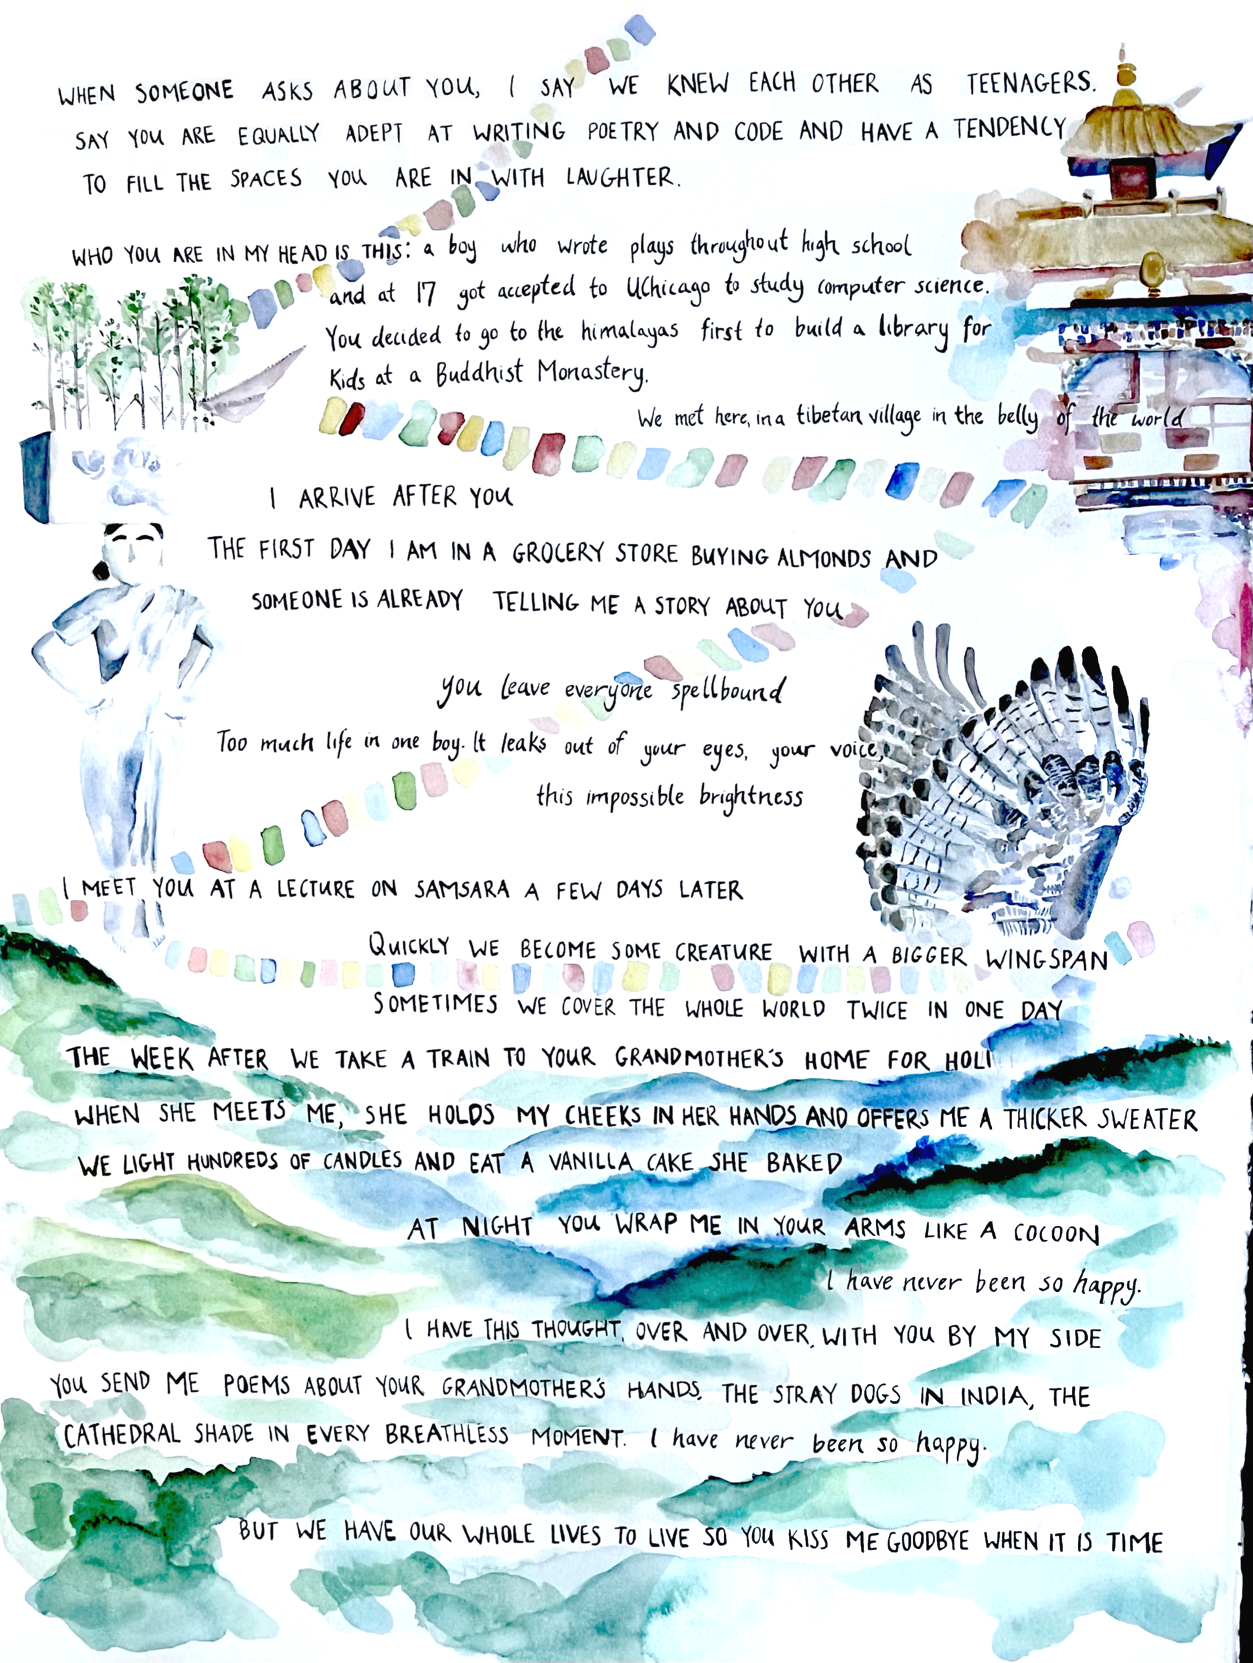 WHEN SOMEONE ASKS ABOUT YOU, I SAY WE KNEW EACH OTHER AS TEENAGERS.
SAY YOU ARE EQUALLY ADEPT AT WRITING POETRY AND CODE AND HAVE A TENDENCY
TO FILL THE SPACES YOU ARE IN WITH LAUGHTER.
WHO YOU ARE IN MY HEAD IS THIS: a boy who wrote plays throughout high school
and at 17 got accepted to UChicago to study computer science.
You decided to go to the himalayas first to build a library for
Kids at a Buddhist Monastery.
We met here, in a tibetan village in the belly of the world
I ARRIVE AFTER YOU
THE FIRST DAY I AM IN A GROCERY STORE BUYING ALMONDS AND
SOMEONE IS ALREADY TELLING ME A STORY ABOUT YOU
you leave everyone spellbound
Too much life in one boy. It leaks out of your eyes, your voice,
this impossible brightness
I MEET YOU AT A LECTURE ON SAMSARA A FEW DAYS LATER
QUICKLY WE BECOME SOME CREATURE WITH A BIGGER WINGSPAN
SOMETIMES WE COVER THE WHOLE WORLD TWICE IN ONE DAY
THE WEEK AFTER WE TAKE A TRAIN TO YOUR GRANDMOTHER'S HOME FOR HOLI
WHEN SHE MEETS ME, SHE HOLDS MY CHEEKS IN HER HANDS AND OFFERS ME A THICKER SWEATER
WE LIGHT HUNDREDS OF CANDLES AND EAT A VANILLA CAKE SHE BAKED
AT NIGHT YOU WRAP ME IN YOUR ARMS LIKE A COCOON
I have never been so happy.
I HAVE THIS THOUGHT, OVER AND OVER, WITH YOU BY MY SIDE
YOU SEND ME POEMS ABOUT YOUR GRANDMOTHER'S HANDS, THE STRAY DOGS IN INDIA, THE
CATHEDRAL SHADE IN EVERY BREATHLESS MOMENT. I have never been so happy.
BUT WE HAVE OUR WHOLE LIVES TO LIVE SO YOU KISS ME GOODBYE WHEN IT IS TIME